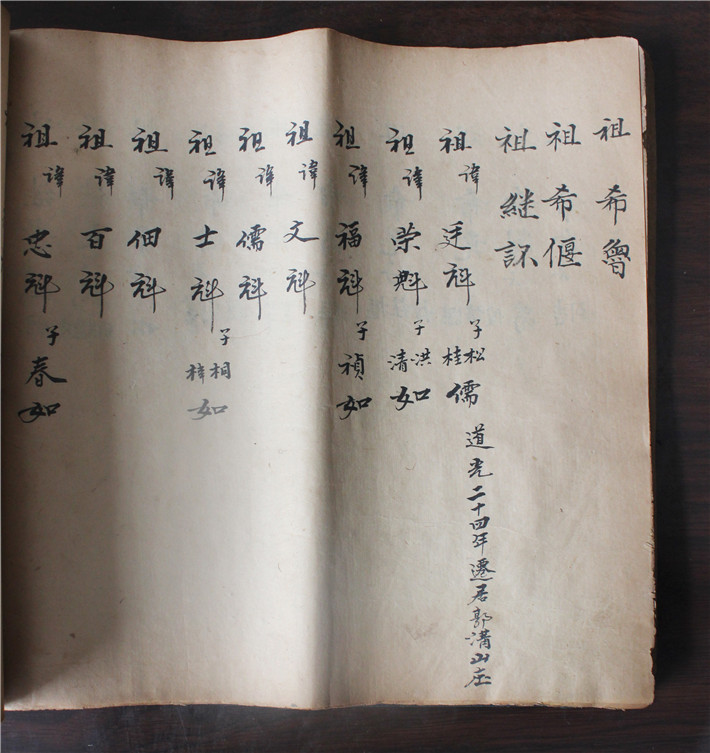 祖希魯
祖希偃
祖継
祖諱廷科子松桂儒
道光二十四年遷居郭溝山庄
祖諱荣魁子洪清如
祖諱福科子禎如
祖諱文科
祖諱儒科
祖諱士科子桐梓如
祖諱佃科
祖諱百科
祖諱忠科子春如